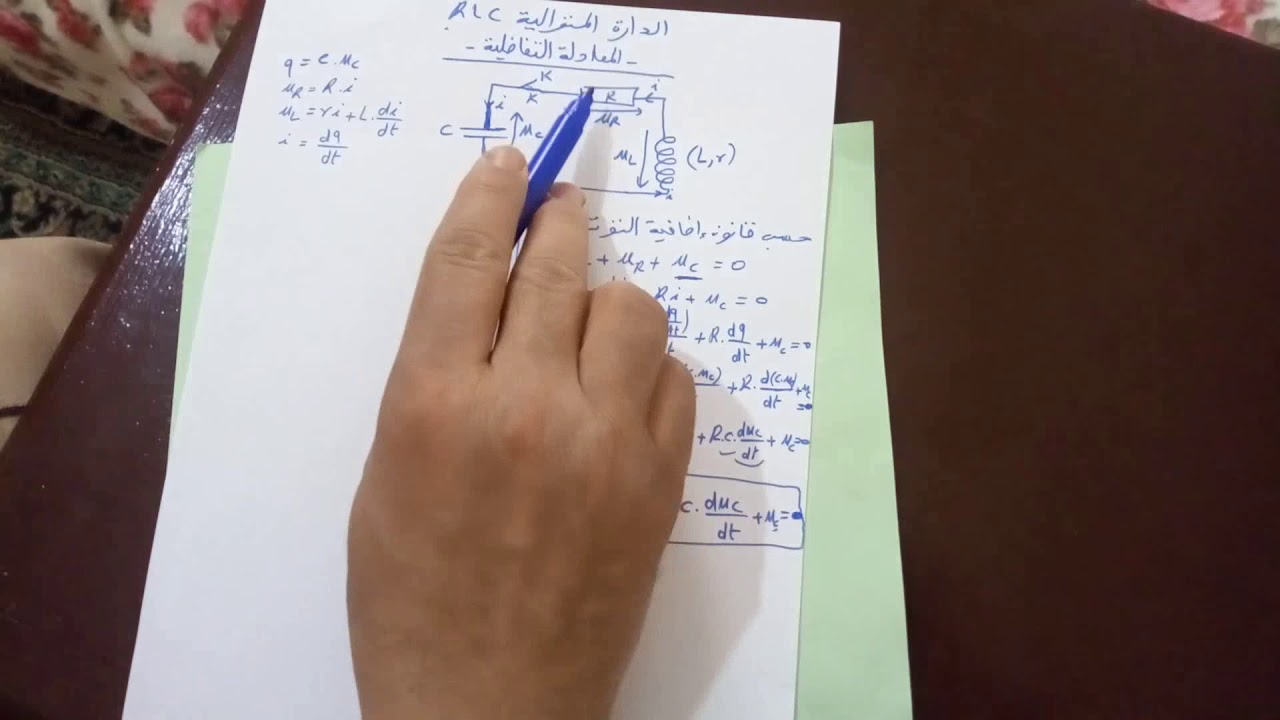 الدارة المتوالية RLC
- المعادلة التفاضلية -
q = C.uc
uR = R.i
uL = ri + L.di/dt
i = dq/dt
K
K
R
i
uR
i
C
uc
uL
(L,r)
i
حسب قانون إضافية
+ uR + uc = 0
Ri + uc = 0
+ R.dq/dt + uc = 0
+ R.d(C.uc)/dt + uc = 0
+ R.C.duc/dt + uc = 0
C.duc/dt + uc =